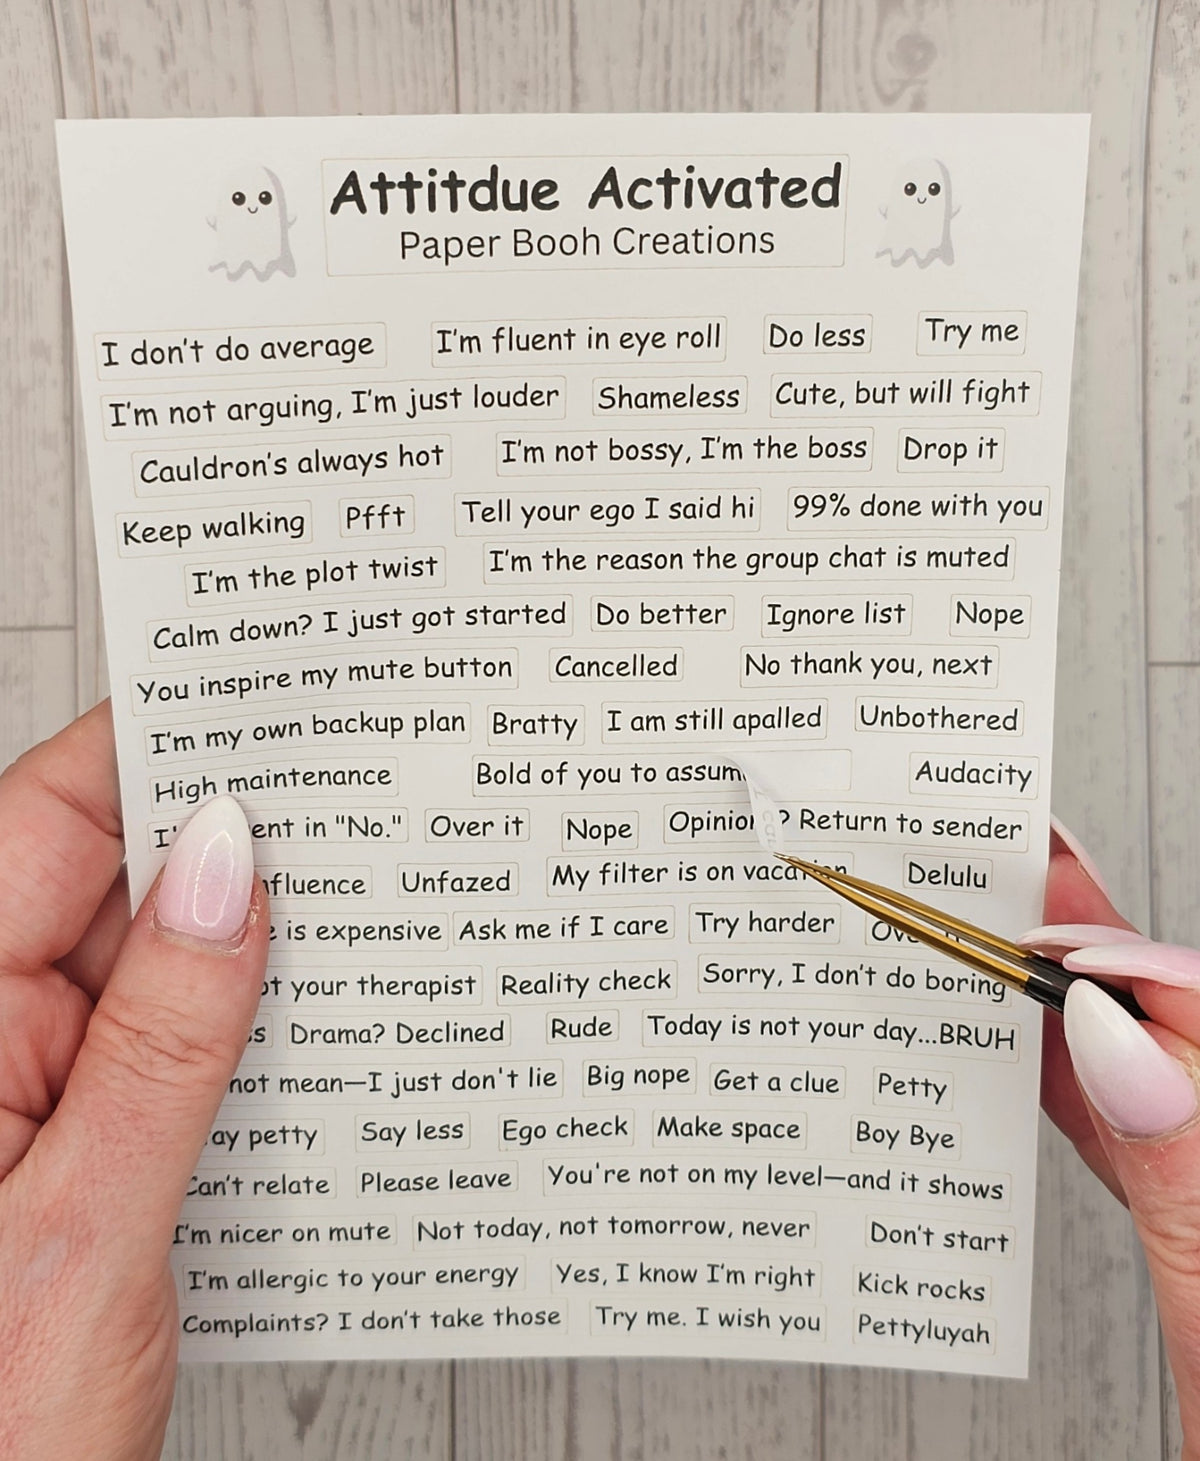 Attitdue Activated
Paper Booh Creations
I don't do average I'm fluent in eye roll Do less Try me
I'm not arguing, I'm just louder Shameless Cute, but will fight
Cauldron's always hot I'm not bossy, I'm the boss Drop it
Keep walking Pfft Tell your ego I said hi 99% done with you
I'm the plot twist I'm the reason the group chat is muted
Calm down? I just got started Do better Ignore list Nope
You inspire my mute button Cancelled No thank you, next
I'm my own backup plan Bratty I am still apalled Unbothered
High maintenance Bold of you to Audacity
in "No." Over it Nope Return to sender
Unfazed My filter is on Delulu
is expensive Ask me if I care Try harder
your therapist Reality check Sorry, I don't do boring
Drama? Declined Rude Today is not your day...BRUH
not mean—I just don't lie Big nope Get a clue Petty
petty Say less Ego check Make space Boy Bye
Can't relate Please leave You're not on my level—and it shows
I'm nicer on mute Not today, not tomorrow, never Don't start
I'm allergic to your energy Yes, I know I'm right Kick rocks
Complaints? I don't take those Try me. I wish you Pettyluyah